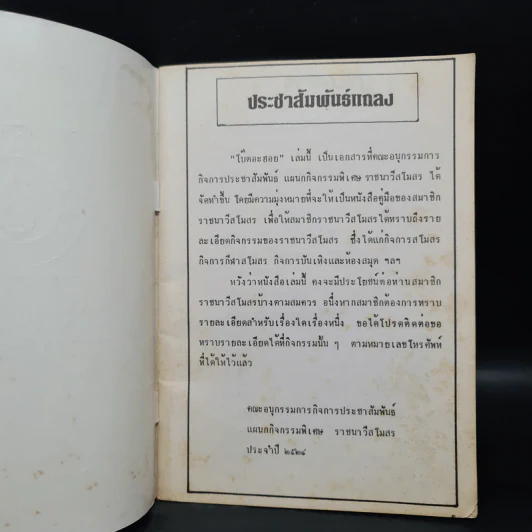 ประชาสัมพันธ์แถลง
"โบ๊ตอะฮอย" เล่มนี้ เป็นเอกสารที่คณะอนุกรรมการ
กิจการประชาสัมพันธ์ แผนกกิจกรรมพิเศษ ราชนาวีสโมสร ได้
จัดทำขึ้น โดยมีความมุ่งหมายที่จะให้เป็นหนังสือคู่มือของสมาชิก
ราชนาวีสโมสร เพื่อให้สมาชิกราชนาวีสโมสรได้ทราบถึงราย
ละเอียดกิจกรรมของราชนาวีสโมสร ซึ่งได้แก่กิจการสโมสร
กิจการกีฬาสโมสร กิจการบันเทิงและห้องสมุด ฯลฯ
หวังว่าหนังสือเล่มนี้ คงจะมีประโยชน์ต่อท่านสมาชิก
ราชนาวีสโมสรบ้างตามสมควร อนึ่งหากสมาชิกต้องการทราบ
รายละเอียดสำหรับเรื่องใดเรื่องหนึ่ง ขอได้โปรดติดต่อขอ
ทราบรายละเอียดได้ที่กิจกรรมนั้น ๆ ตามหมายเลขโทรศัพท์
ที่ได้ให้ไว้แล้ว
คณะอนุกรรมการกิจการประชาสัมพันธ์
แผนกกิจกรรมพิเศษ ราชนาวีสโมสร
ประจำปี ๒๕๒๔